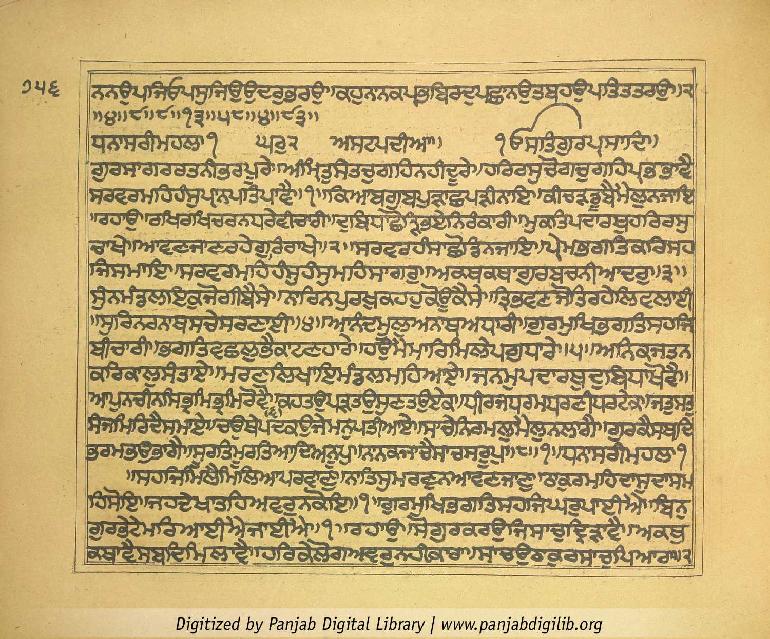 ੭੫੬
ਨਨਉਪਜਿਓਪਸੁਜਿਉਉਦਰੁਭਰਉ॥ਕਹੁਨਨਕਪ੍ਰਭਬਿਰਦੁਪਛਾਨਉਤਬਹਉਪਤਿਤਤਰਉ॥੨
॥੪॥੯॥੯॥੧੩॥੫੮॥੪॥੯੩॥
ਧਨਾਸਰੀਮਹਲਾ੧ ਘਰੁ੨ ਅਸਟਪਦੀਆ॥ ੧ਓਸਤਿਗੁਰਪ੍ਰਸਾਦਿ॥
ਗੁਰਸਾਗਰਰਤਨੀਭਰਪੂਰੇ॥ਅੰਮ੍ਰਿਤੁਸੰਤਚੁਗਹਿਨਹੀਦੂਰੇ॥ਹਰਿਰਸੁਚੋਗਚੁਗਹਿਪ੍ਰਭਭਾਵੈ
ਸਰਵਰਮਹਿਹੰਸੁਪ੍ਰਾਨਪਤਿਪਾਵੈ॥੧॥ਕਿਆਬਗੁਬਪੁੜਾਛਪੜੀਨਾਇ॥ਕੀਚੜਿਡੂਬੈਮੈਲੁਨਜਾਇ
॥ਰਹਾਉ॥ਰਖਿਰਖਿਚਰਨਧਰੇਵੀਚਾਰੀ॥ਦੁਬਿਧਾਛੋਡਿਭਏਨਿਰੰਕਾਰੀ॥ਮੁਕਤਿਪਦਾਰਥੁਹਰਿਰਸ
ਚਾਖੇ॥ਆਵਣਜਾਣਰਹੇਗੁਰਿਰਾਖੇ॥੨॥ਸਰਵਰਹੰਸਾਛੋਡਿਨਜਾਇ॥ਪ੍ਰੇਮਭਗਤਿਕਰਿਸਹ
ਜਿਸਮਾਇ॥ਸਰਵਰਮਹਿਹੰਸੁਹੰਸਮਹਿਸਾਗਰੁ॥ਅਕਥਕਥਾਗੁਰਬਚਨੀਆਦਰੁ॥੩॥
ਸੁੰਨਮੰਡਲਇਕੁਜੋਗੀਬੈਸੇ॥ਨਾਰਿਨਪੁਰਖੁਕਹਹੁਕੋਊਕੈਸੇ॥ਤ੍ਰਿਭਵਣਜੋਤਿਰਹੇਲਿਵਲਾਈ
॥ਸੁਰਿਨਰਨਾਥਸਚੇਸਰਣਾਈ॥੪॥ਆਨੰਦਮੂਲੁਅਨਾਥਅਧਾਰੀ॥ਗੁਰਮੁਖਿਭਗਤਿਸਹਜਿ
ਬੀਚਾਰੀ॥ਭਗਤਿਵਛਲਭੈਕਾਟਣਹਾਰੇ॥ਹਉਮੈਮਾਰਿਮਿਲੇਪਗੁਧਾਰੇ॥੫॥ਅਨਿਕਜਤਨ
ਕਰਿਕਾਲੁਸੰਤਾਏ॥ਮਰਣੁਲਿਖਾਇਮੰਡਲਮਹਿਆਏ॥ਜਨਮੁਪਦਾਰਥੁਦੁਬਿਧਾਖੋਵੈ॥
ਆਪੁਨਚੀਨਸਿਭ੍ਰਮਿਭ੍ਰਮਿਰੋਵੈ॥੬॥ਕਹਤਉਪੜਤਉਸੁਣਤਉਏਕ॥ਧੀਰਜਧਰਮਧਰਣੀਧਰਟੇਕ॥ਜਤੁਸਤੁ
ਸੰਜਮਿਰਿਦੈਸਮਾਏ॥ਚਉਥੇਪਦਕਉਜੇਮਨੁਪਤੀਆਏ॥ਸਾਚੇਨਿਰਮਲਮੈਲੁਨਲਾਗੈ॥ਗੁਰਕੈਸਬਦਿ
ਭਰਮਭਉਭਾਗੈ॥ਸੂਰਤਿਮੂਰਤਿਆਦਿਅਨੂਪੁ॥ਨਨਕਜਾਚੈਸਾਚਸਰੂਪੁ॥੮॥੧॥ਧਨਾਸਰੀਮਹਲਾ੧
॥ਸਹਜਿਮਿਲੈਮਿਲਿਆਪਰਵਾਣੁ॥ਨਾਤਿਸੁਮਰਣੁਨਆਵਣਜਾਣੁ॥ਠਾਕੁਰਮਹਿਦਾਸੁਦਾਸਮ
ਹਿਸੋਇ॥ਜਹਦੇਖਾਤਹਅਵਰੁਨਕੋਇ॥੧॥ਗੁਰਮੁਖਿਭਗਤਿਸਹਜਿਘਰੁਪਾਈਐ॥ਬਿਨੁ
ਗੁਰਭੇਟੇਮਰਿਆਈਐਜਾਈਐ॥੧॥ਰਹਾਉ॥ਸੋਗੁਰਕਰਉਜਿਸਾਚੁਦ੍ਰਿੜਾਵੈ॥ਅਕਥੁ
ਕਥਾਵੈਸਬਦਿਮਿਲਾਵੈ॥ਹਰਿਕੇਲੋਗਅਵਰੁਨਹੀਕਾਰਾ॥ਸਾਚਉਠਾਕੁਰੁਸਾਚੁਪਿਆਰਾ॥੨
Digitized by Panjab Digital Library | www.panjabdigilib.org